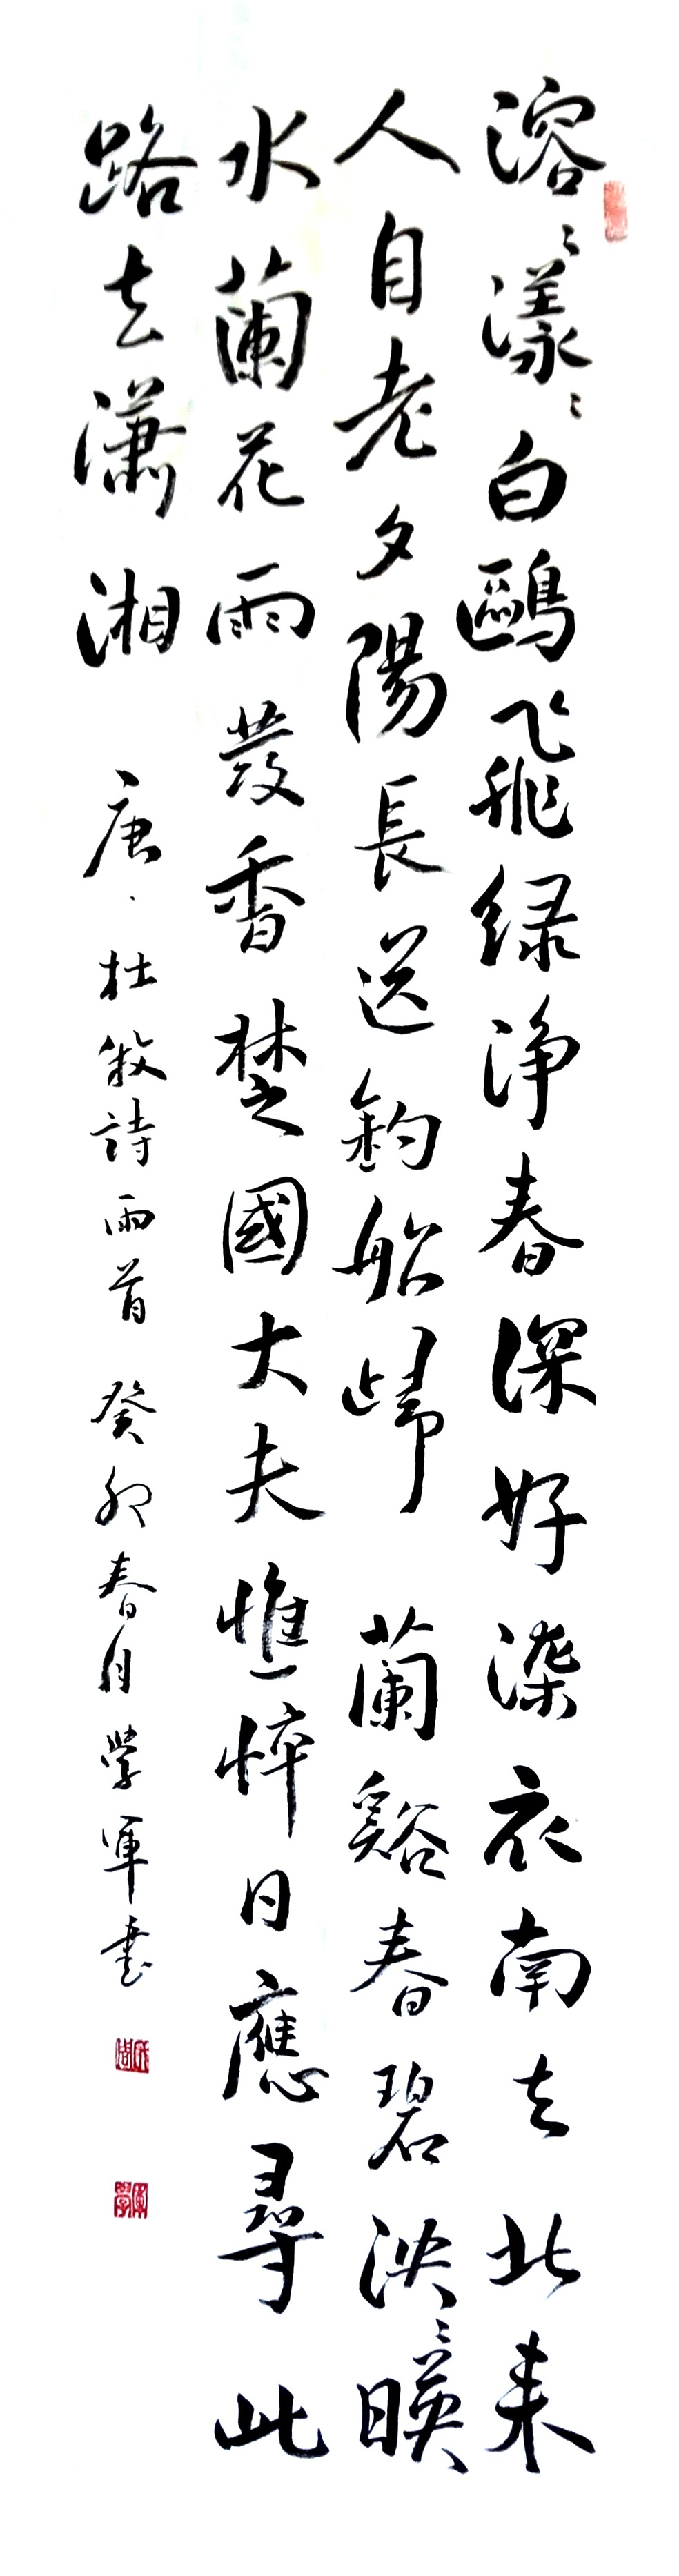 溶〻漾〻白鷗飛绿淨春深好染衣南去北来
人自老夕陽長送釣船歸 蘭谿春碧泱〻暎
水蘭花雨發香楚國大夫憔悴日應尋此
路去瀟湘 唐·杜牧詩兩首 癸卯春月學軍書